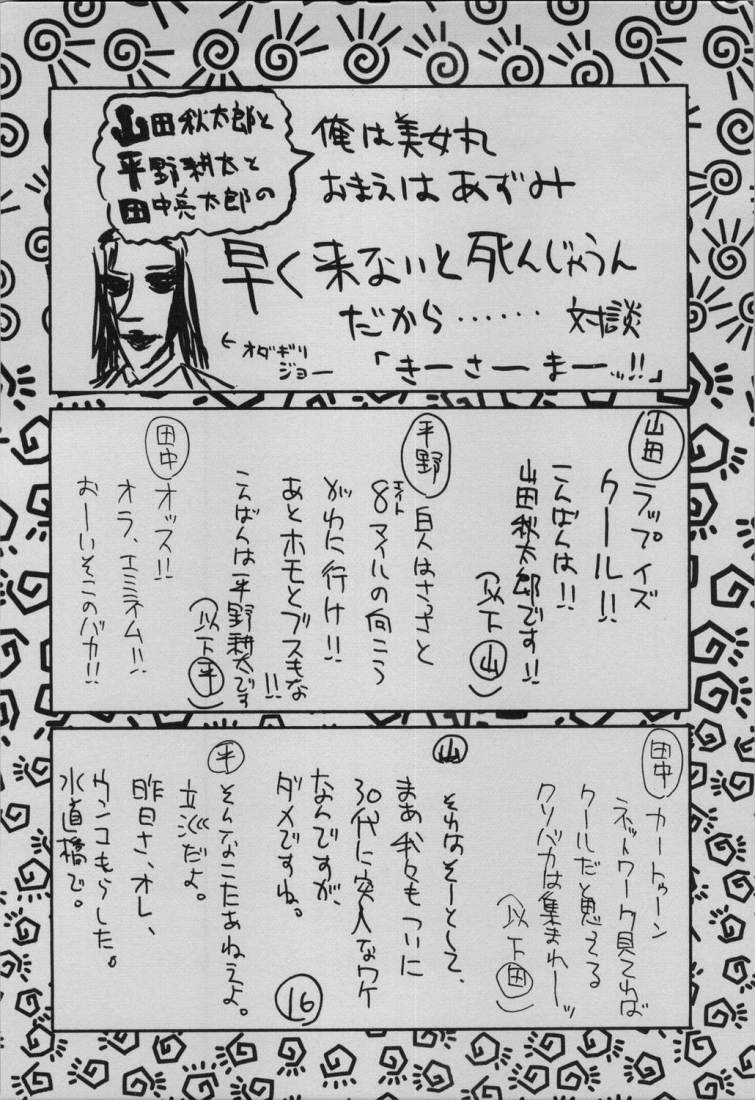 山田秋太郎と
平野耕太と
田中亮太郎の
俺は美女丸
おまえはあずみ
早く来ないと死んじゃうん
だから……対談
「きーさーまーッ!!」
←オダギリ
ジョー
山田 ラップイズ
クール!!
こんばんは!!
山田秋太郎です!!
(以下山)
平野 白人はさっさと
8マイルの向こう
エイト
がわに行け!!
あとホモとブスもな!!
こんばんは平野耕太です
(以下平)
田中 オッス!!
オラ、エミネム!!
おーいそこのバカ!!
田中 カートゥーン
ネットワーク見てれば
クールだと思ってる
クソバカは集まれーッ
(以下田)
山 それはそーとして、
まあ我々もついに
30代に突入なワケ
なんですが、
ダメですね。
平 そんなこたあねえよ。
立派だよ。
昨日さ、オレ、
ウンコもらした。
水道橋で。
16